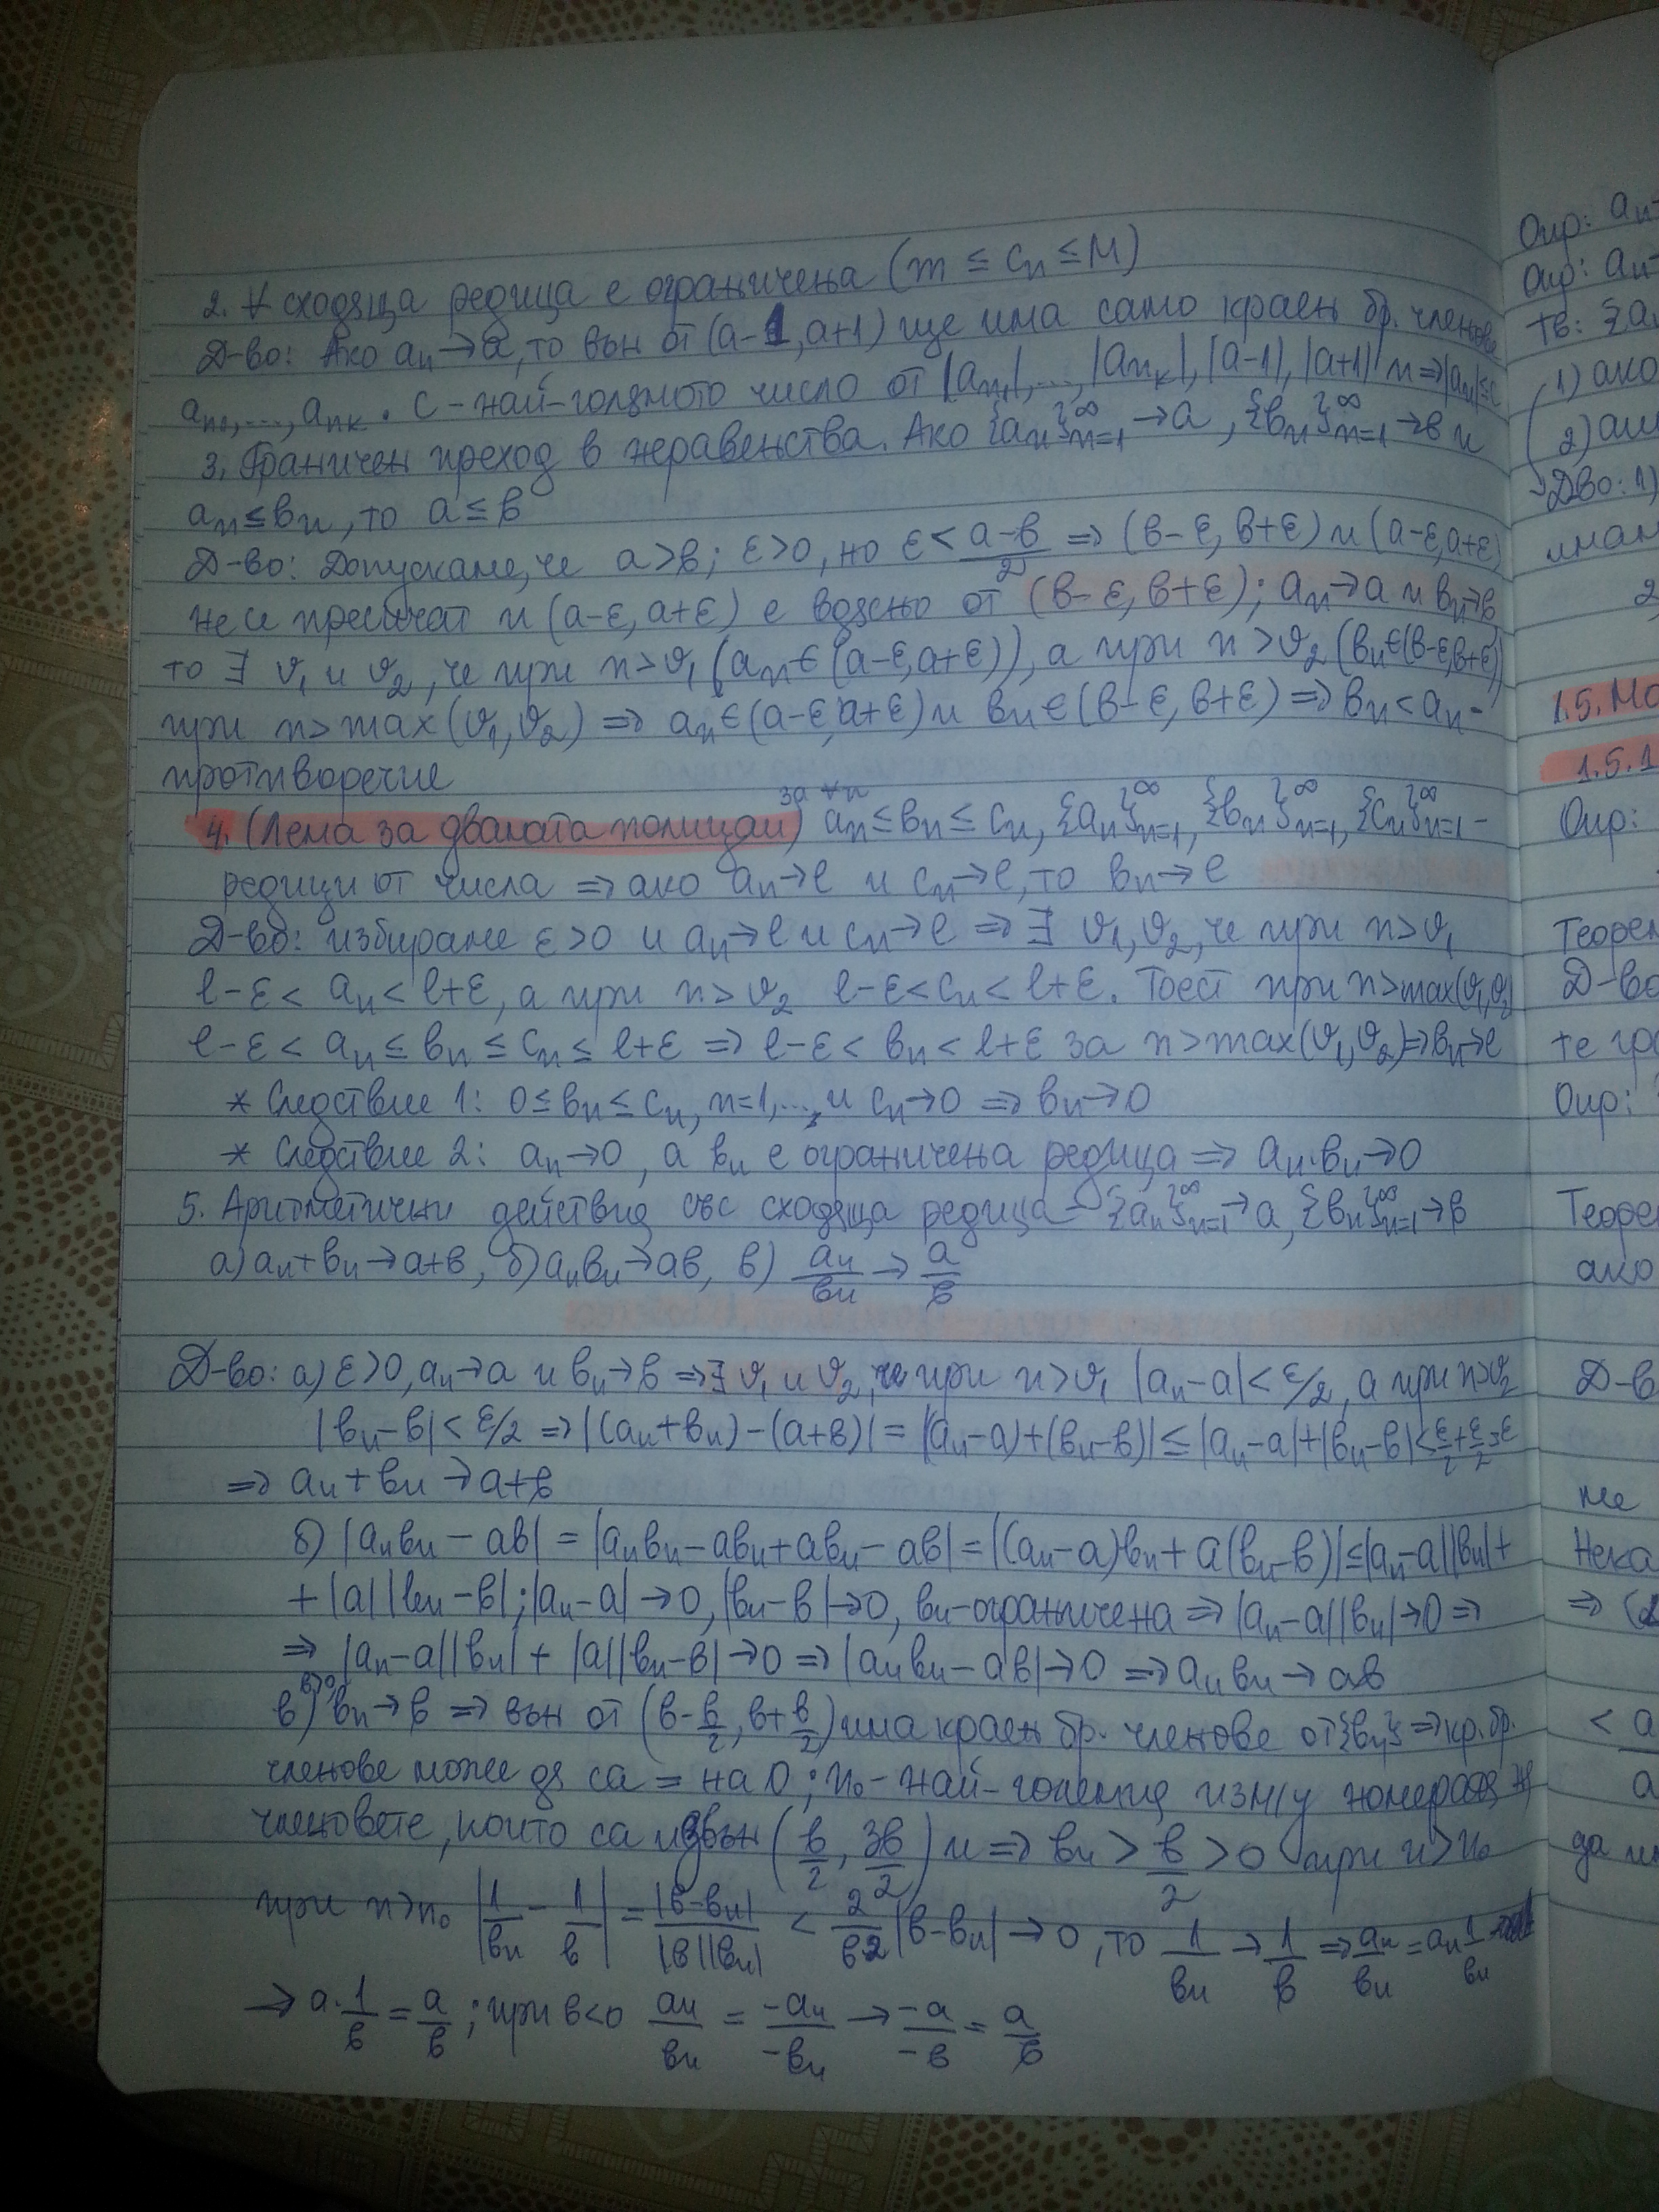 2. ∀ сходяща редица е ограничена (m ≤ cₙ ≤ M)
Д-во: Ако aₙ→a, то вън от (a-1, a+1) ще има само краен бр. членове
aₙ₁,..., aₙₖ. c - най-голямото число от |aₙ₁|,..., |aₙₖ|, |a-1|, |a+1| и ⇒|aₙ|≤c
3. Граничен преход в неравенства. Ако {aₙ}ₙ₌₁^∞ →a, {bₙ}ₙ₌₁^∞ →b и
aₙ≤bₙ, то a≤b
Д-во: Допускаме, че a>b; ε>0, но ε< (a-b)/2 ⇒ (b-ε, b+ε) и (a-ε, a+ε)
не се пресичат и (a-ε, a+ε) е вдясно от (b-ε, b+ε); aₙ→a и bₙ→b
то ∃ ϑ₁ и ϑ₂, че при n>ϑ₁ (aₙ∈(a-ε, a+ε)), а при n>ϑ₂ (bₙ∈(b-ε, b+ε))
при n>max(ϑ₁, ϑ₂) ⇒ aₙ∈(a-ε, a+ε) и bₙ∈(b-ε, b+ε) ⇒ bₙ<aₙ -
противоречие
4. (Лема за двамата полицаи) за ∀n aₙ≤bₙ≤cₙ, {aₙ}ₙ₌₁^∞, {bₙ}ₙ₌₁^∞, {cₙ}ₙ₌₁^∞ -
редици от числа ⇒ ако aₙ→l и cₙ→l, то bₙ→l
Д-во: избираме ε>0 и aₙ→l и cₙ→l ⇒ ∃ ϑ₁, ϑ₂, че при n>ϑ₁
l-ε< aₙ< l+ε, а при n>ϑ₂ l-ε<cₙ< l+ε. Тоест при n>max(ϑ₁, ϑ₂)
l-ε< aₙ ≤ bₙ ≤ cₙ ≤ l+ε ⇒ l-ε< bₙ< l+ε за n>max(ϑ₁, ϑ₂)⇒bₙ→l
* Следствие 1: 0≤bₙ≤cₙ, n=1,..., и cₙ→0 ⇒ bₙ→0
* Следствие 2: aₙ→0, а bₙ е ограничена редица ⇒ aₙ.bₙ→0
5. Аритметични действия със сходяща редица - {aₙ}ₙ₌₁^∞→a, {bₙ}ₙ₌₁^∞→b
а) aₙ+bₙ→a+b, б) aₙbₙ→ab, в) aₙ/bₙ → a/b
Д-во: а) ε>0, aₙ→a и bₙ→b ⇒∃ ϑ₁ и ϑ₂, че при n>ϑ₁ |aₙ-a|<ε/2, а при n>ϑ₂
|bₙ-b|<ε/2 ⇒ |(aₙ+bₙ)-(a+b)| = |(aₙ-a)+(bₙ-b)| ≤ |aₙ-a|+|bₙ-b|< ε/2+ε/2=ε
⇒ aₙ+bₙ→a+b
б) |aₙbₙ - ab| = |aₙbₙ-abₙ+abₙ-ab| = |(aₙ-a)bₙ+a(bₙ-b)|≤|aₙ-a||bₙ|+
+|a||bₙ-b|; |aₙ-a|→0, |bₙ-b|→0, bₙ-ограничена ⇒ |aₙ-a||bₙ|→0 ⇒
⇒ |aₙ-a||bₙ| + |a||bₙ-b|→0 ⇒ |aₙbₙ-ab|→0 ⇒ aₙbₙ→ab
b>0
в) bₙ→b ⇒ вън от (b-b/2, b+b/2) има краен бр. членове от {bₙ} ⇒кр. бр.
членове може да са = на 0; n₀ - най-големия изм/у номерата
членовете, които са извън (b/2, 3b/2) и ⇒ bₙ > b/2 >0 при n>n₀
при n>n₀ |1/bₙ - 1/b| = |b-bₙ|/|b||bₙ| < 2/b² |b-bₙ|→0, то 1/bₙ → 1/b ⇒ aₙ/bₙ = aₙ 1/bₙ
→ a.1/b = a/b; при b<0 aₙ/bₙ = -aₙ/-bₙ → -a/-b = a/b
Опр: aₙ
Опр: aₙ
Тв: {a
1) ако
2) ак
Д-во: 1)
2
1.5. Мо
1.5.1
Опр:
Теорем
Д-во
те гра
Опр:
Теоре
ако
Д-в
Нека
⇒
< a
a
да